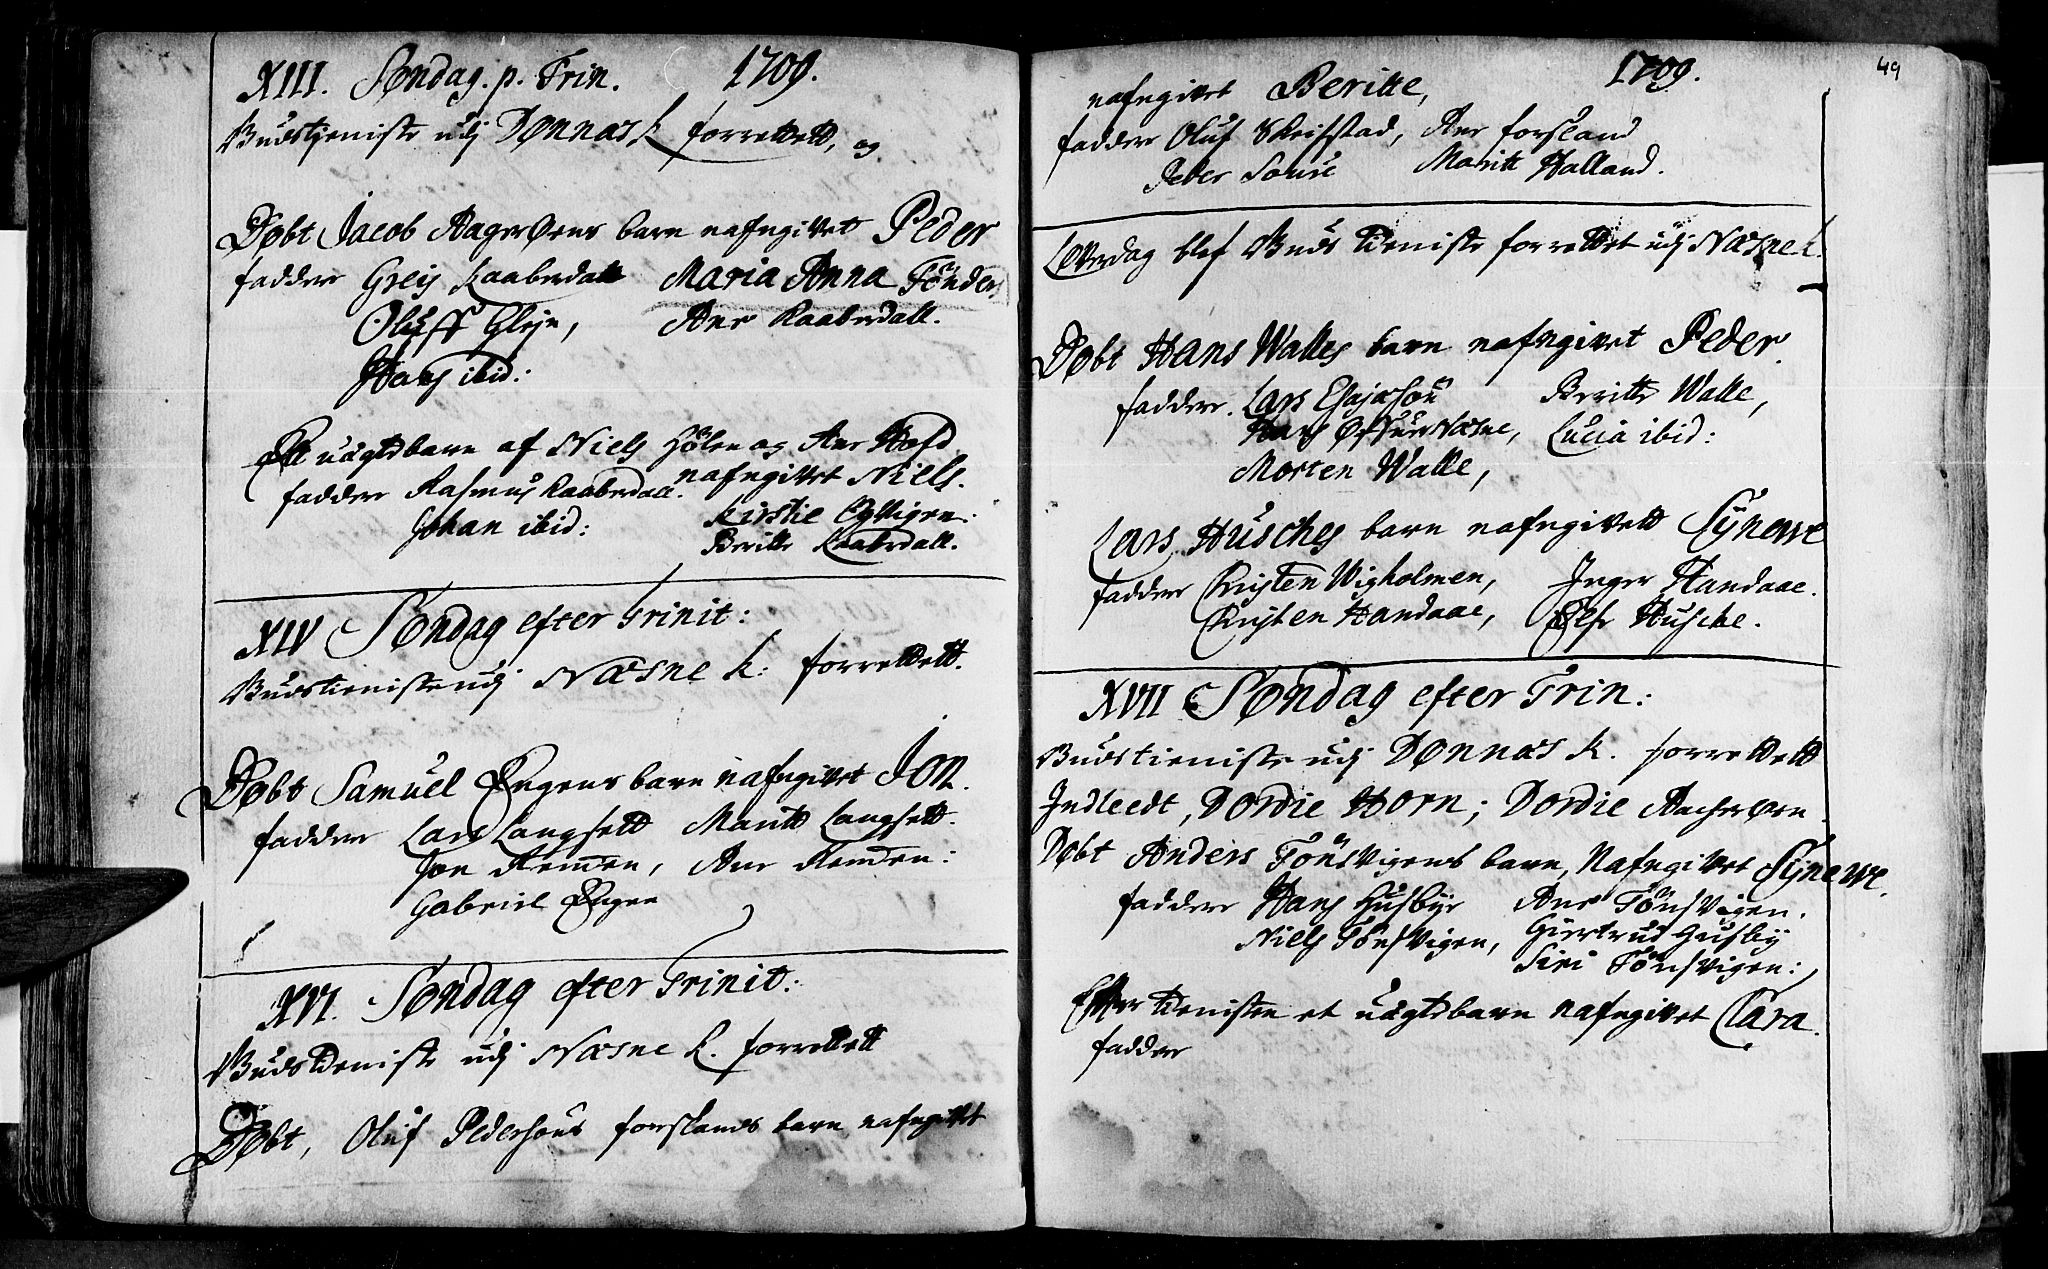 XIII. Søndag. p. Trin. 1709.
Gudstieniste udj Dønnæs K forrettett, og
Døbt Jacob Aagerøens barn nafngivet Peder
faddere Greis Kaaberdall Maria Anna Tönder
Oluff Glejn, Ane Kaaberdall.
Hans ibid:
Et uægtebarn af Niels Hölen og Ane Hofd
nafngivet Niels.
faddere Rasmus Kaaberdall. Kirstie
Johan ibid: Beritte Kaaberdall.
XIV Søndag efter Trinit:
Gudstieniste udj Næsne K: forrettett.
Døbt Samuel Engens barn nafngivet Jon.
faddere Lars Langsett Maritt Langsett.
Jon Remen, Ane Remen:
Gabriel Engen
XVI. Søndag efter Trinit:
Gudstieniste udj Næsne K. forrettett
Døbt, Oluf Pedersøns forslands barn nafngivet
1709. 49
nafngivet Beritte,
faddere Oluf Skeifstad, Ane forsland
Peder Maritt Halland.
Løverdag blef Guds tieniste forrettet udj Næsne K.
Døbt Hans Walles barn nafngivet Peder.
faddere. Lars Esajasön Beritte Walle,
Hans Næsne, Lucia ibid:
Morten Walle,
Lars Husches barn nafngivett Synewe
faddere Christen Wigholmen, Inger Handaae.
Christen Handaae, Else Husche.
XVII Søndag efter Trin:
Gudstieniste udj Dønnæs K. forrettett
Indleedt, Dordie Horn; Dordie Aacherøen
Døbt Anders Tönsvigens barn, Nafngivet Synewe.
faddere Hans Husbye Ane Tönsvigen.
Niels Tönsvigen, Giertrud Husby
Siri Tönsvigen:,
Efter tienisten et uægtebarn nafngivet Clara.
faddere